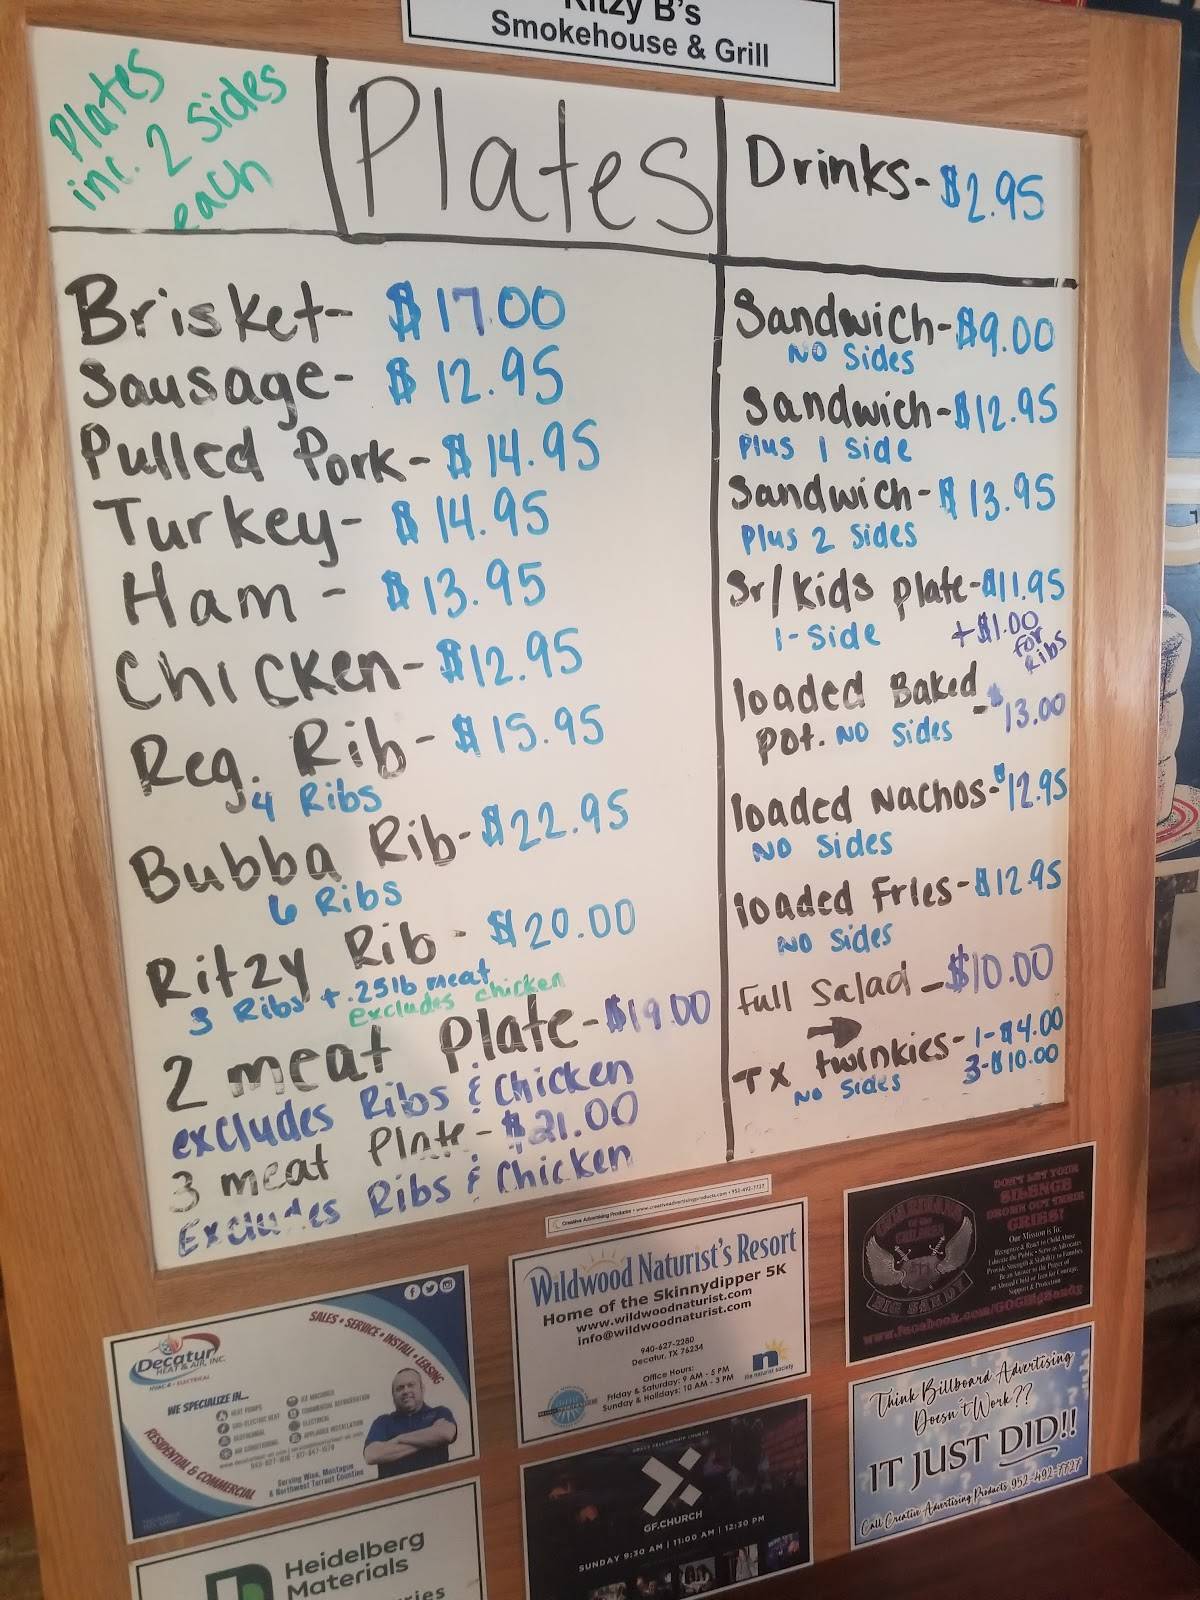 Ritzy B's
Smokehouse & Grill
Plates
inc. 2 sides
each
Plates
Brisket- $17.00
Sausage- $12.95
Pulled Pork- $14.95
Turkey- $14.95
Ham - $13.95
Chicken- $12.95
Reg. Rib- $15.95
4 Ribs
Bubba Rib- $22.95
6 Ribs
Ritzy Rib - $20.00
3 Ribs + .25lb meat
excludes chicken
2 meat plate- $19.00
excludes Ribs & Chicken
3 meat Plate- $21.00
Excludes Ribs & Chicken
Drinks- $2.95
Sandwich- $9.00
NO Sides
Sandwich- $12.95
Plus 1 side
Sandwich- $13.95
Plus 2 sides
Sr/Kids plate- $11.95
1-side +$1.00
for
Ribs
loaded Baked
pot. NO sides - $13.00
loaded Nachos- $12.95
NO sides
loaded Fries- $12.95
NO sides
full salad - $10.00
TX twinkies- 1-$4.00
NO sides 3-$10.00
Creative Advertising Products • www.creativeadvertisingproducts.com • 952-492-7727
Decatur
HEAT & AIR, INC.
HVAC-R - ELECTRICAL
SALES • SERVICE • INSTALL • LEASING
WE SPECIALIZE IN...
HEAT PUMPS
GEOTHERMAL
AIR CONDITIONING
ICE MACHINES
COMMERCIAL REFRIGERATION
ELECTRICAL
APPLIANCE INSTALLATION
RESIDENTIAL & COMMERCIAL
Serving Wise, Montague
& Northwest Tarrant Counties
Wildwood Naturist's Resort
Home of the Skinnydipper 5K
www.wildwoodnaturist.com
info@wildwoodnaturist.com
940-627-2280
Decatur, TX 76234
Office Hours:
Friday & Saturday: 9 AM - 5 PM
Sunday & Holidays: 10 AM - 3 PM
the naturist society
GUARDIANS
of the
CHILDREN
BIG SANDY
DON'T LET YOUR
SILENCE
DROWN OUT THEIR
CRIES!
Our Mission is To:
Recognize & React to Child Abuse
Educate the Public • Serve as Advocates
Provide Strength & Stability to Families
Be an Answer to the Prayer of
an Abused Child or Teen for Courage,
Support & Protection
www.facebook.com/GOCBigSandy
Think Billboard Advertising
Doesn't Work??
IT JUST DID!!
Call Creative Advertising Products 952-492-7727
GRACE FELLOWSHIP CHURCH
GF.CHURCH
SUNDAY 9:30 AM | 11:00 AM | 12:30 PM
Heidelberg
Materials